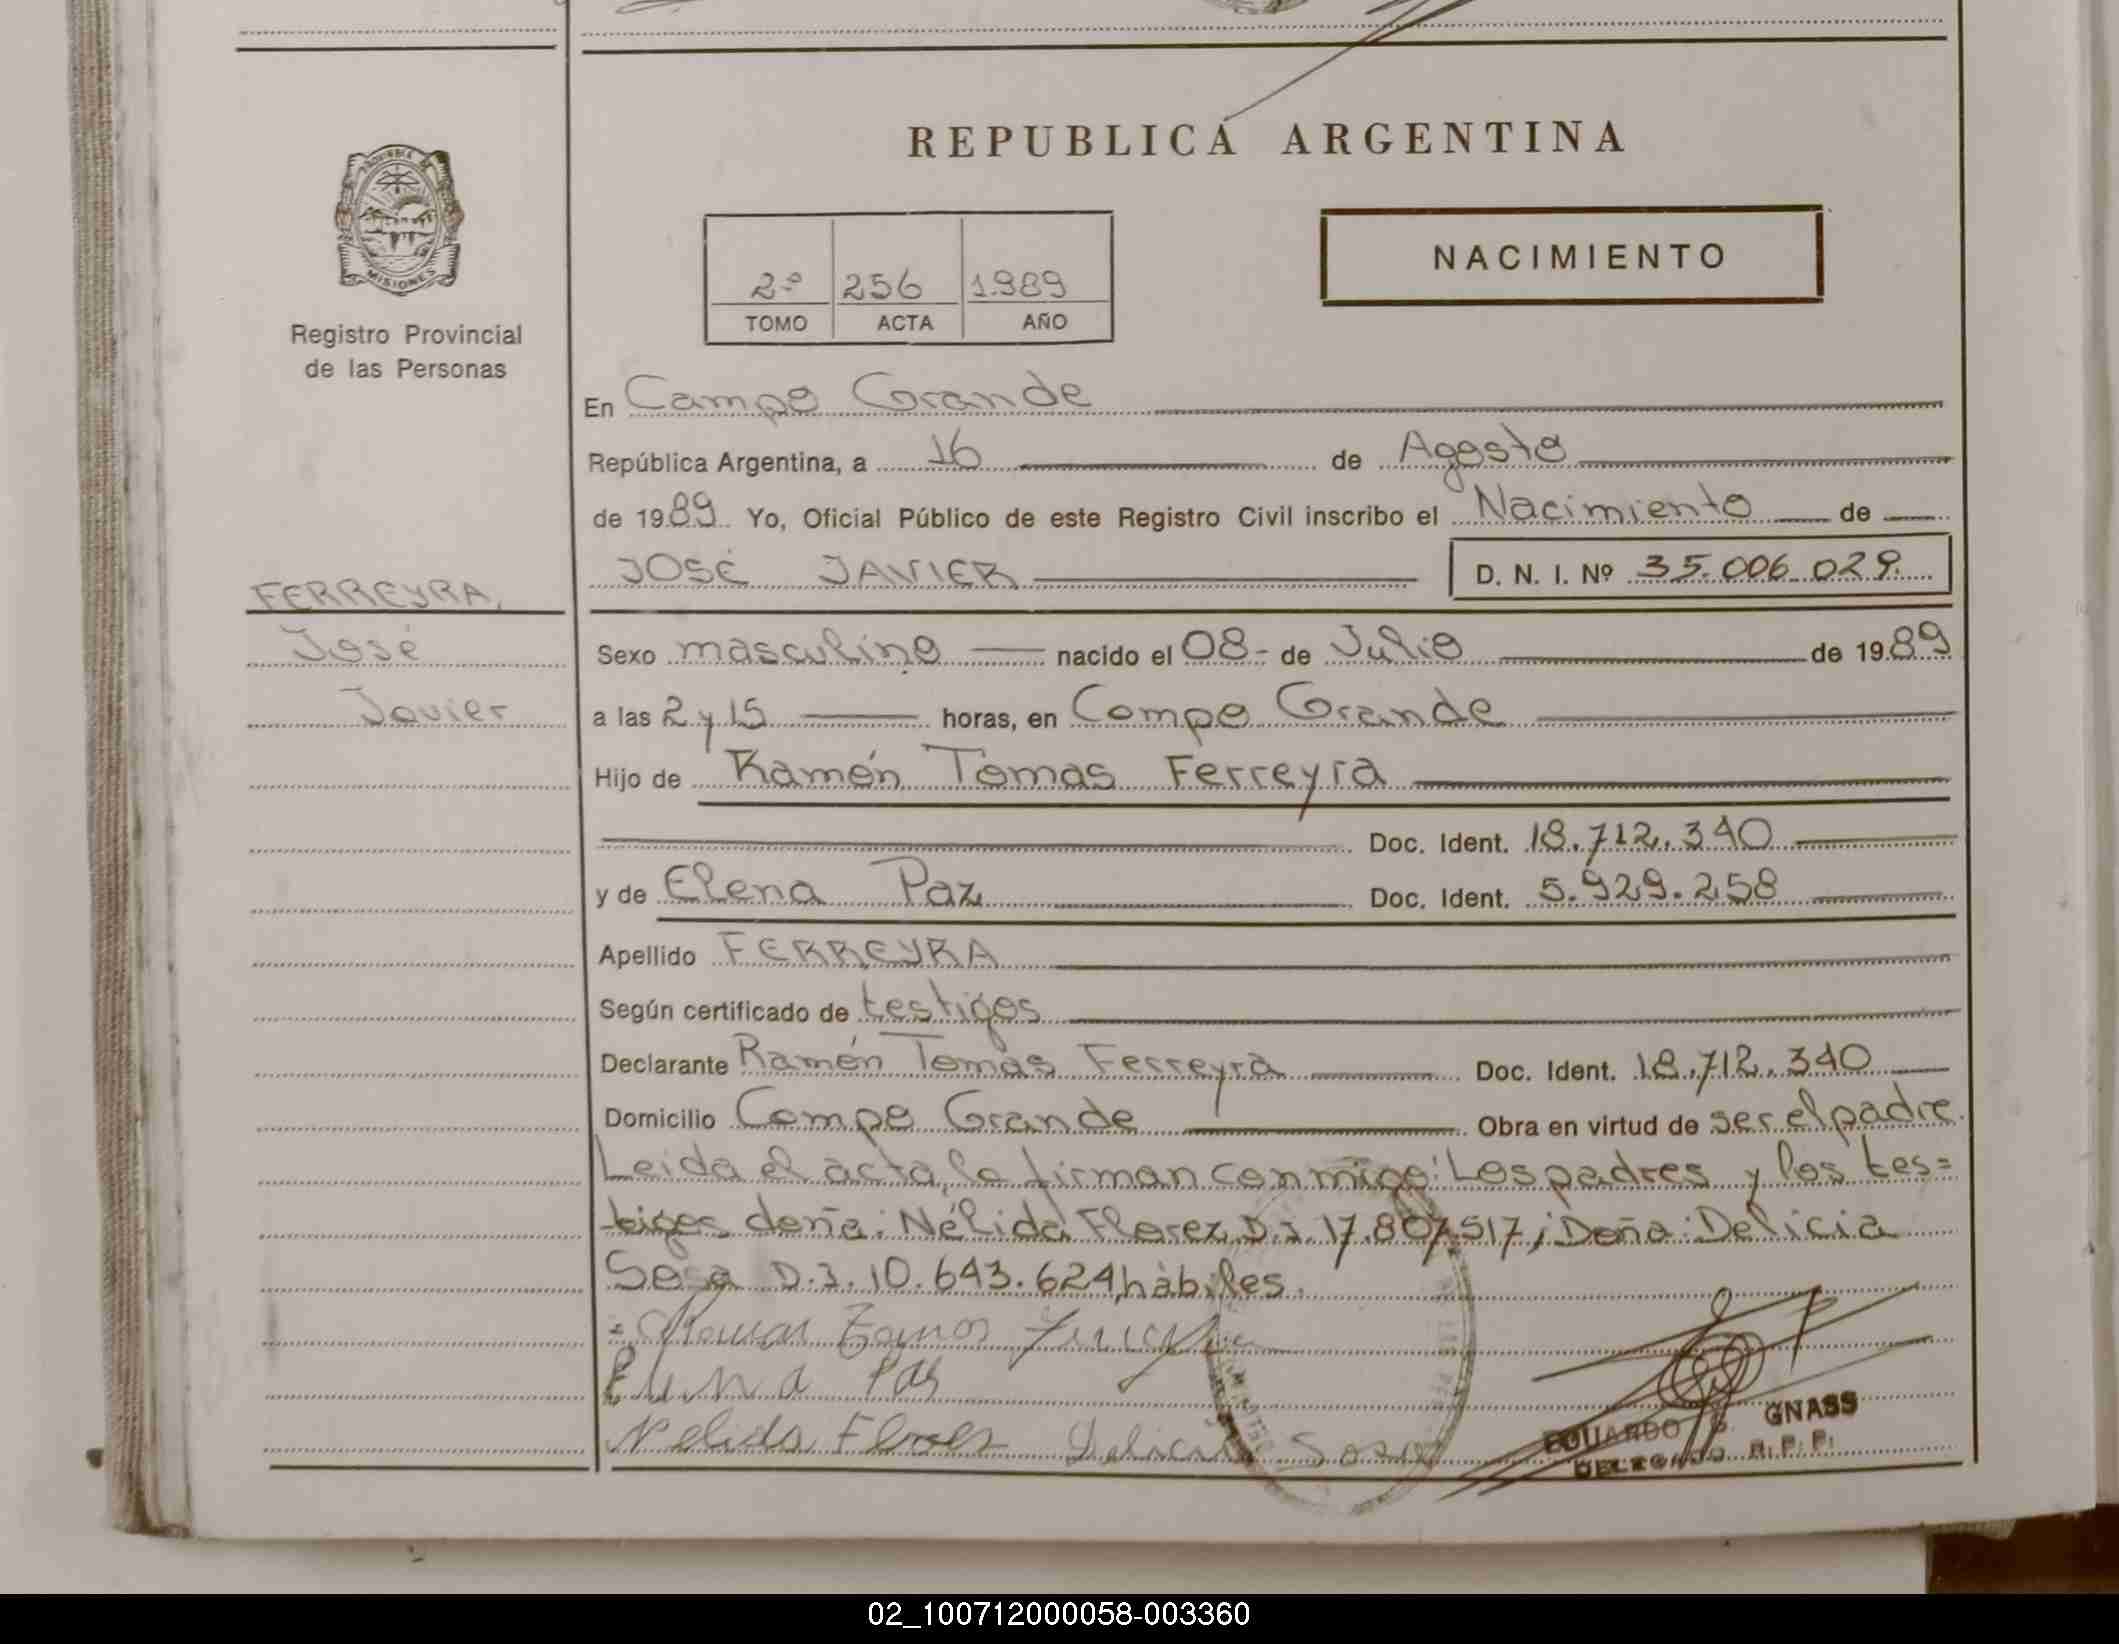 REPUBLICA ARGENTINA
PROVINCIA DE
MISIONES
Registro Provincial
de las Personas
2º 256 1.989
TOMO ACTA AÑO
NACIMIENTO
En Campo Grande
República Argentina, a 16 de Agosto
de 1989 Yo, Oficial Público de este Registro Civil inscribo el Nacimiento de
JOSÉ JAVIER D. N. I. Nº 35.006.029.
FERREYRA,
José
Javier
Sexo masculino nacido el 08- de Julio de 1989
a las 2 y 15 horas, en Campo Grande
Hijo de Ramón Tomas Ferreyra
Doc. Ident. 18.712.340
y de Elena Paz Doc. Ident. 5.929.258
Apellido FERREYRA
Según certificado de testigos
Declarante Ramón Tomás Ferreyra Doc. Ident. 18.712.340
Domicilio Campo Grande Obra en virtud de ser el padre.
Leida el acta, la firman conmigo: Los padres y los tes=
tigos doña: Nélida Florez D.I. 17.807.517; Doña: Delicia
Sosa D.I. 10.643.624, hábiles.
Elena Pas
Nelida Flores Delicia Sosa
EDUARDO S. GNASS
DELEGADO R. P. P.
02_100712000058-003360